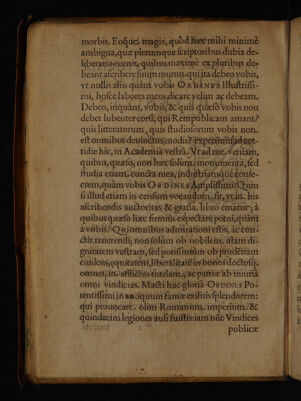 morbis. Eoque magis, quòd hæc mihi minimè
ambigua, quæ plerumque scriptoribus dubia de-
liberatio euenit, quibus maximè ex pluribus de-
beant ascribere suum munus. qui ita debeo vobis,
vt nullis aliis quàm vobis ORDINES Illustrissi-
mi, hosce labores meos dicare velim ac debeam.
Debeo, inquam, vobis; & quis quæso vobis non
debet lubenter eorũ, qui Rempublicam amant?
quis litteratorum, quis studiosorum vobis non
est omnibus deuinctus modis? experimẽta
tidiè hîc, in Academia vestrâ. Vt ad me veniam,
quibus, quæso, non hæc solùm monumenta, sed
studia etiam cuncta mea, industriamque conse-
crem, quàm vobis ORDINES Amplissimi? Quin
si illud etiam in censum vocandum sit, vt in his
ascribendis auctoritas & gratia libro ematur; à
quibus quæso hæc firmiùs expectare potui, quàm
à vobis? Qui omnibus admirationi estis, ac cun-
ctis reuerendi, non solùm ob nobilem istam di-
gnitatem vestram, sed potissimùm ob prudentiam
ciuilem, æquitatem, liberalitatem in bonos doctosq́;
omnes, in afflictos tutelam, ac patriæ ab iniuriâ
omni vindicias. Macti hac gloriâ ORDINES Po-
tentissimi in antiquum famæ exsilitis splendorem:
qui prouocare olim Romanum imperium, &
quindecim legiones ausi fuistis; iam nũc Vindices
publicæ